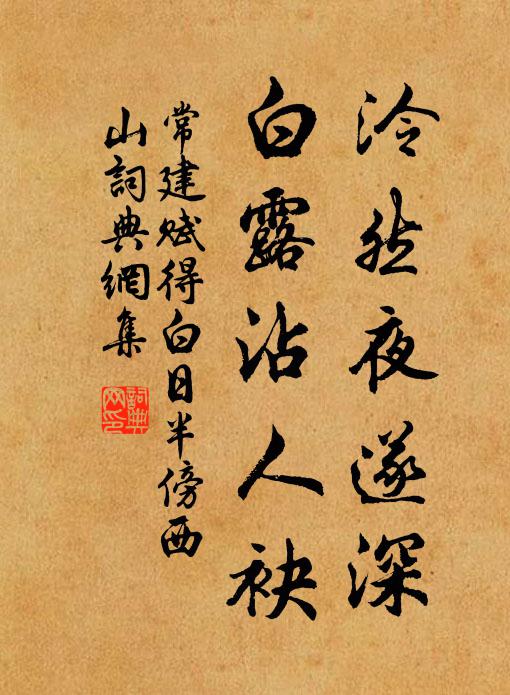 泠然夜遂深
白露沾人袂
常建赋得白日半傍西
山詞典網集
詞典
网印